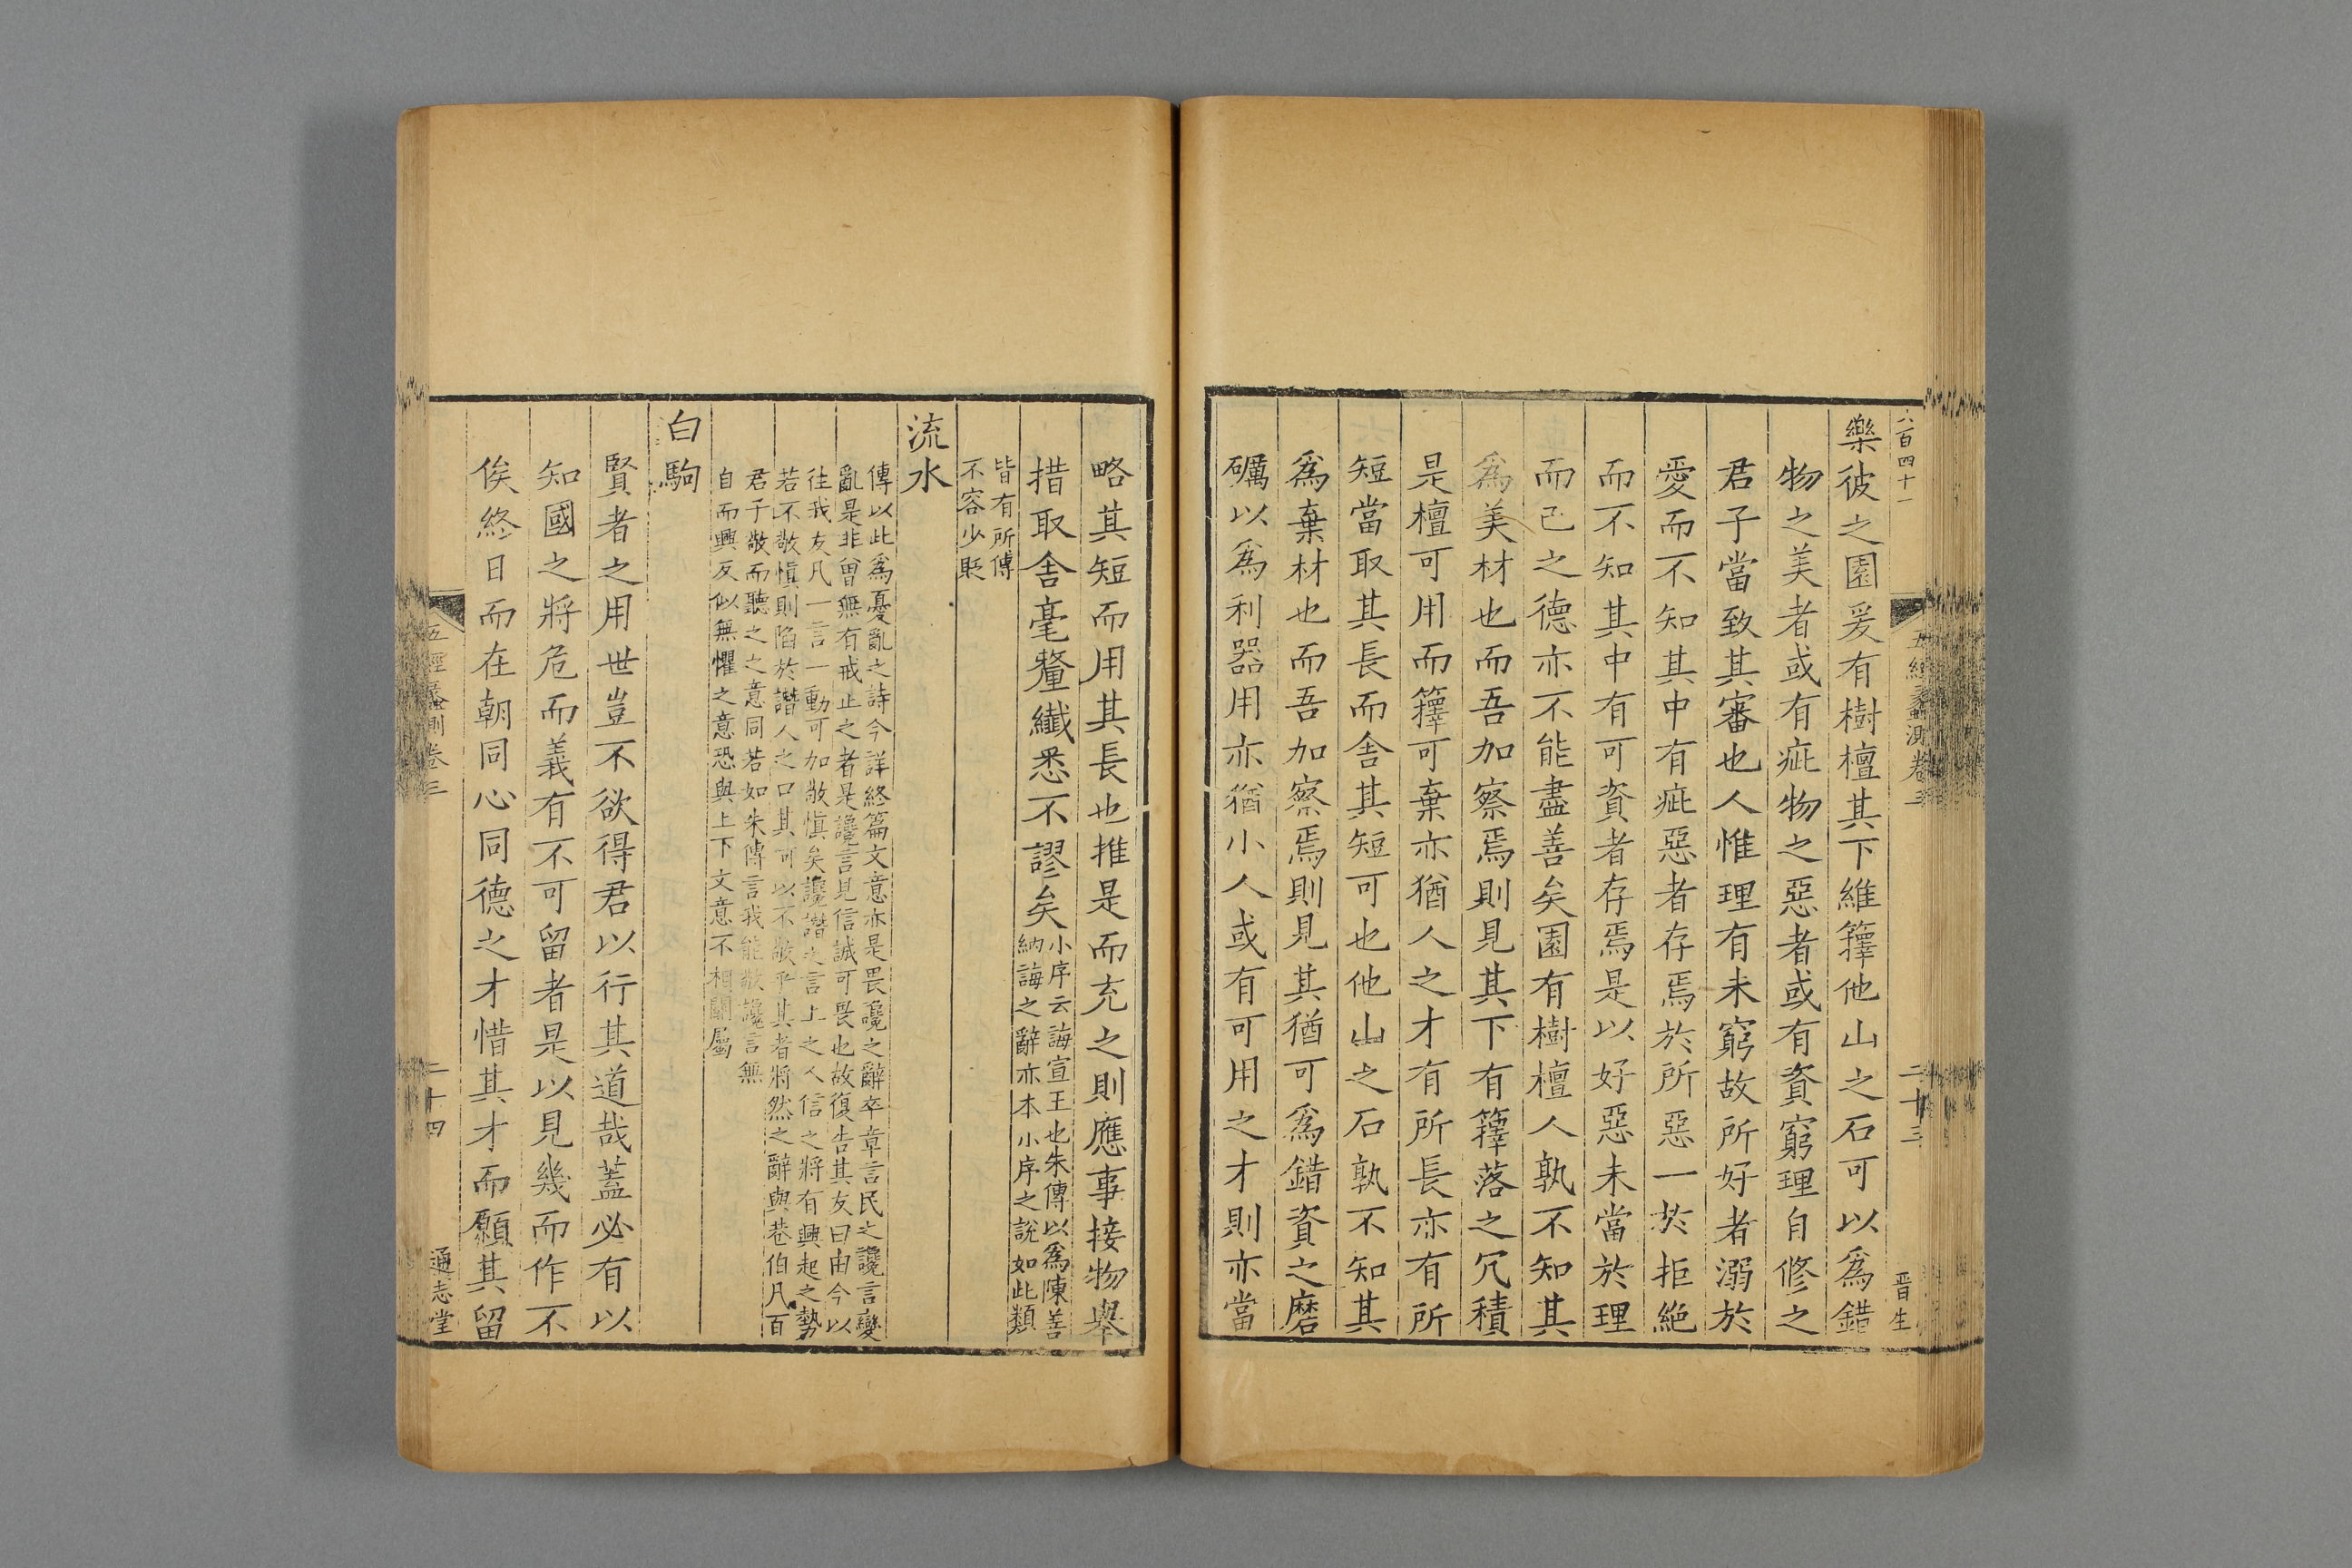 六百四十一
五經蠡測卷三
二十三
晋生
樂彼之園爰有樹檀其下維蘀他山之石可以爲錯
物之美者或有疵物之惡者或有資窮理自修之
君子當致其審也人惟理有未窮故所好者溺於
愛而不知其中有疵惡者存焉於所惡一於拒絶
而不知其中有可資者存焉是以好惡未當於理
而己之德亦不能盡善矣園有樹檀人孰不知其
爲美材也而吾加察焉則見其下有蘀落之冗積
是檀可用而蘀可棄亦猶人之才有所長亦有所
短當取其長而舍其短可也他山之石孰不知其
爲棄材也而吾加察焉則見其猶可爲錯資之磨
礪以爲利器用亦猶小人或有可用之才則亦當
略其短而用其長也推是而充之則應事接物舉
措取舍毫釐纖悉不謬矣小序云誨宣王也朱傳以爲陳善
納誨之辭亦本小序之說如此類
皆有所傳
不容少貶
流水
傳以此爲憂亂之詩今詳終篇文意亦是畏讒之辭卒章言民之讒言變
亂是非曾無有戒止之者是讒言見信誠可畏也故復告其友曰由今以
往我友凡一言一動可加敬愼矣讒譖之言上之人信之將有興起之勢
若不敬愼則陷於譖人之口其可以不敬乎其者將然之辭與巷伯凡百
君子敬而聽之之意同若如朱傳言我能敬讒言無
自而興反似無懼之意恐與上下文意不相關屬
白駒
賢者之用世豈不欲得君以行其道哉蓋必有以
知國之將危而義有不可留者是以見幾而作不
俟終日而在朝同心同德之才惜其才而願其留
五經蠡測卷三
二十四
通志堂